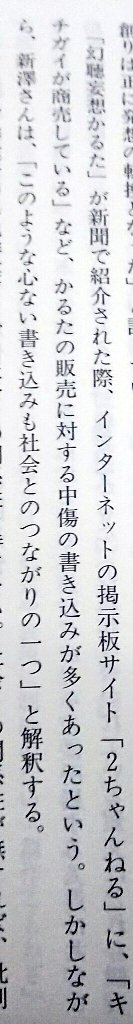 「幻聴妄想かるた」が新聞で紹介された際、インターネットの掲示板サイト「2ちゃんねる」に、「キ
チガイが商売している」など、かるたの販売に対する中傷の書き込みが多くあったという。しかしなが
ら、新澤さんは、「このような心ない書き込みも社会とのつながりの一つ」と解釈する。